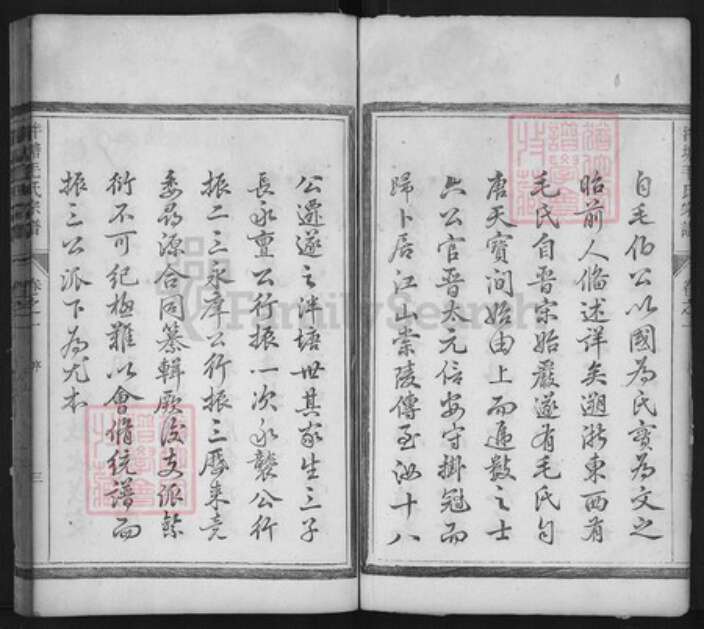 自毛伯公以國為氏實為文之
昭前人偹述詳矣溯浙東西有
毛氏自晉宋始嚴遂有毛氏自
唐天寶間始由上而遞數之士
六公官晉太元信安守掛冠而
歸卜居江山棠陵傳至汝十八
公遷遂之泮塘世其家生三子
長永亶公行振一次永襲公行
振二三永庠公行振三歷来克
委尋源合同纂輯厥後支派繁
衍不可紀極難以會脩統譜而
振三公派下為尤夲
泮塘毛氏宗譜 卷之一 序 三
FamilySearch